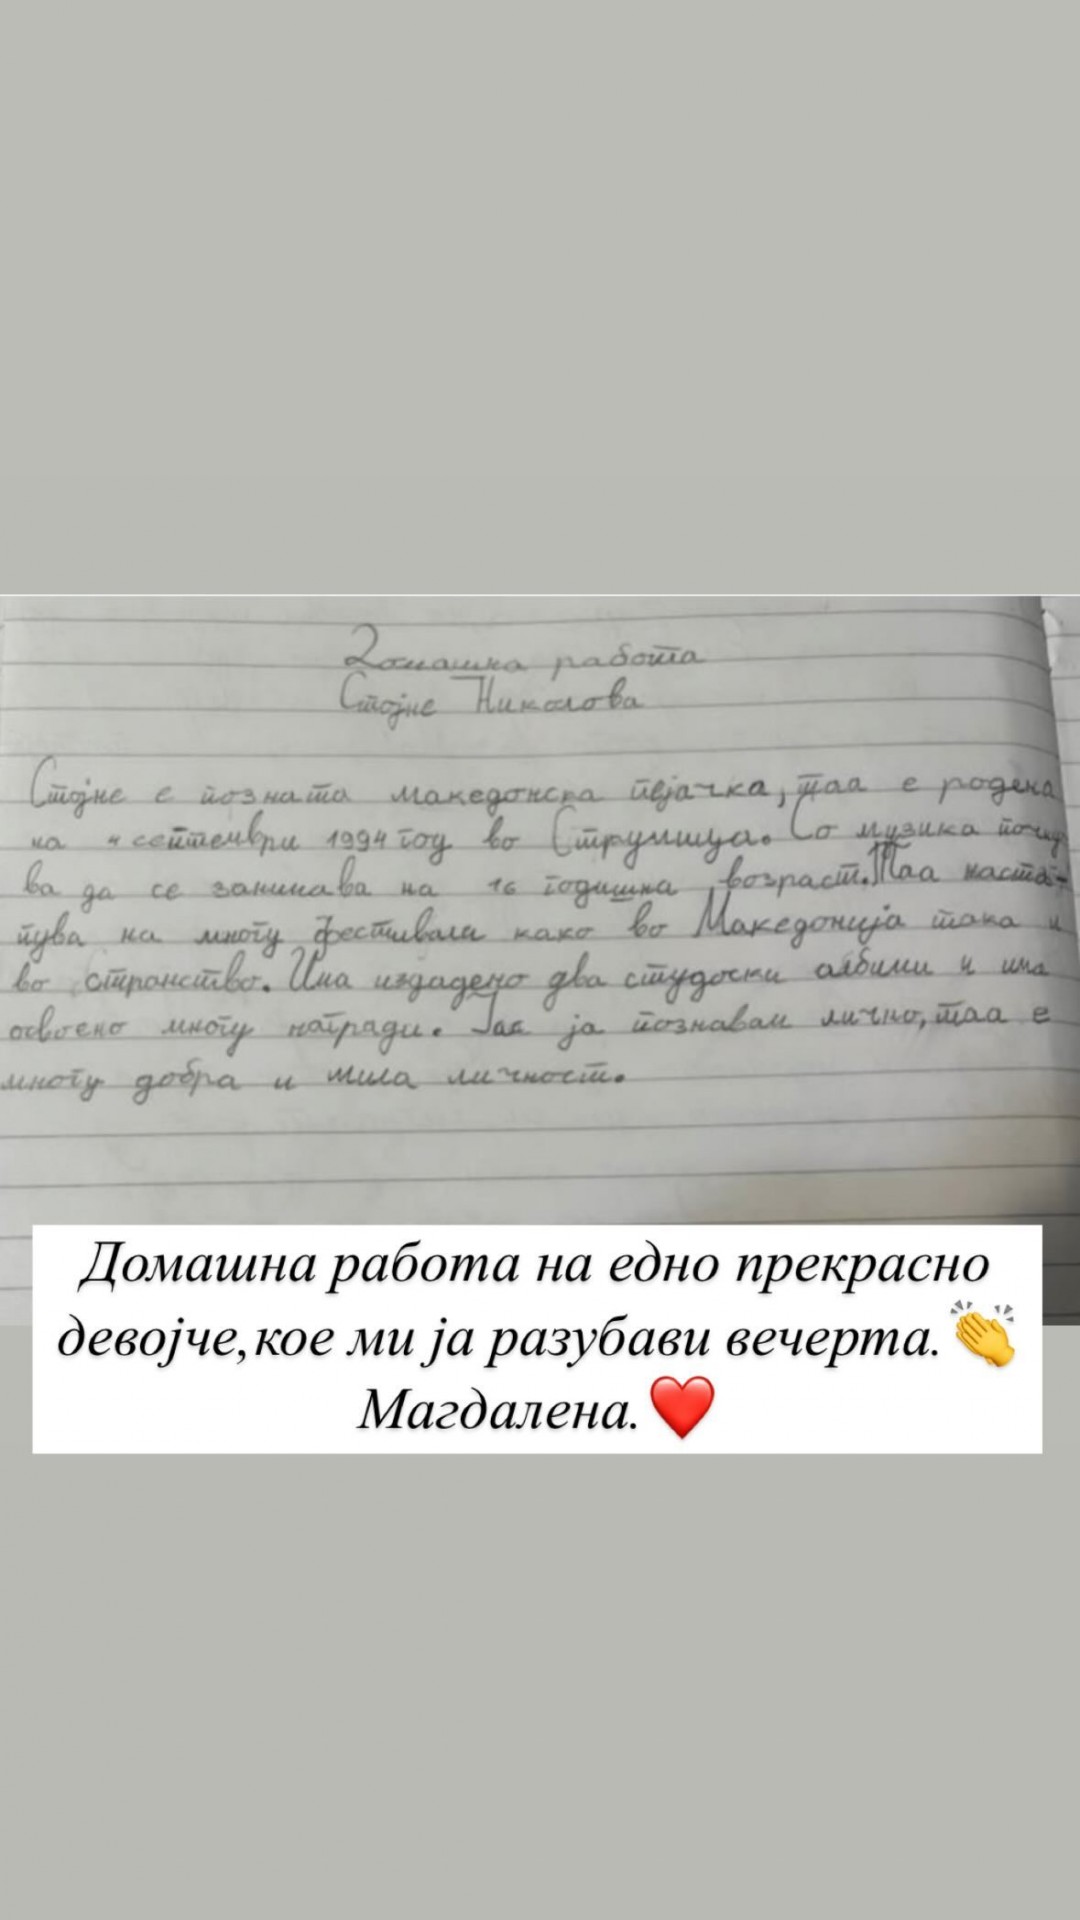 Домашна работа
Стојне Николова
Стојне е позната македонска пејачка, таа е родена
на 4 септември 1994 год во Струмица. Со музика почну
ва да се занимава на 16 годишна возраст. Таа наста-
пува на многу фестивали како во Македонија така и
во странство. Има издадено два студоски албими и има
освоено многу награди. Јас ја познавам лично, таа е
многу добра и мила личност.
Домашна работа на едно прекрасно
девојче,кое ми ја разубави вечерта.👏
Магдалена.❤️